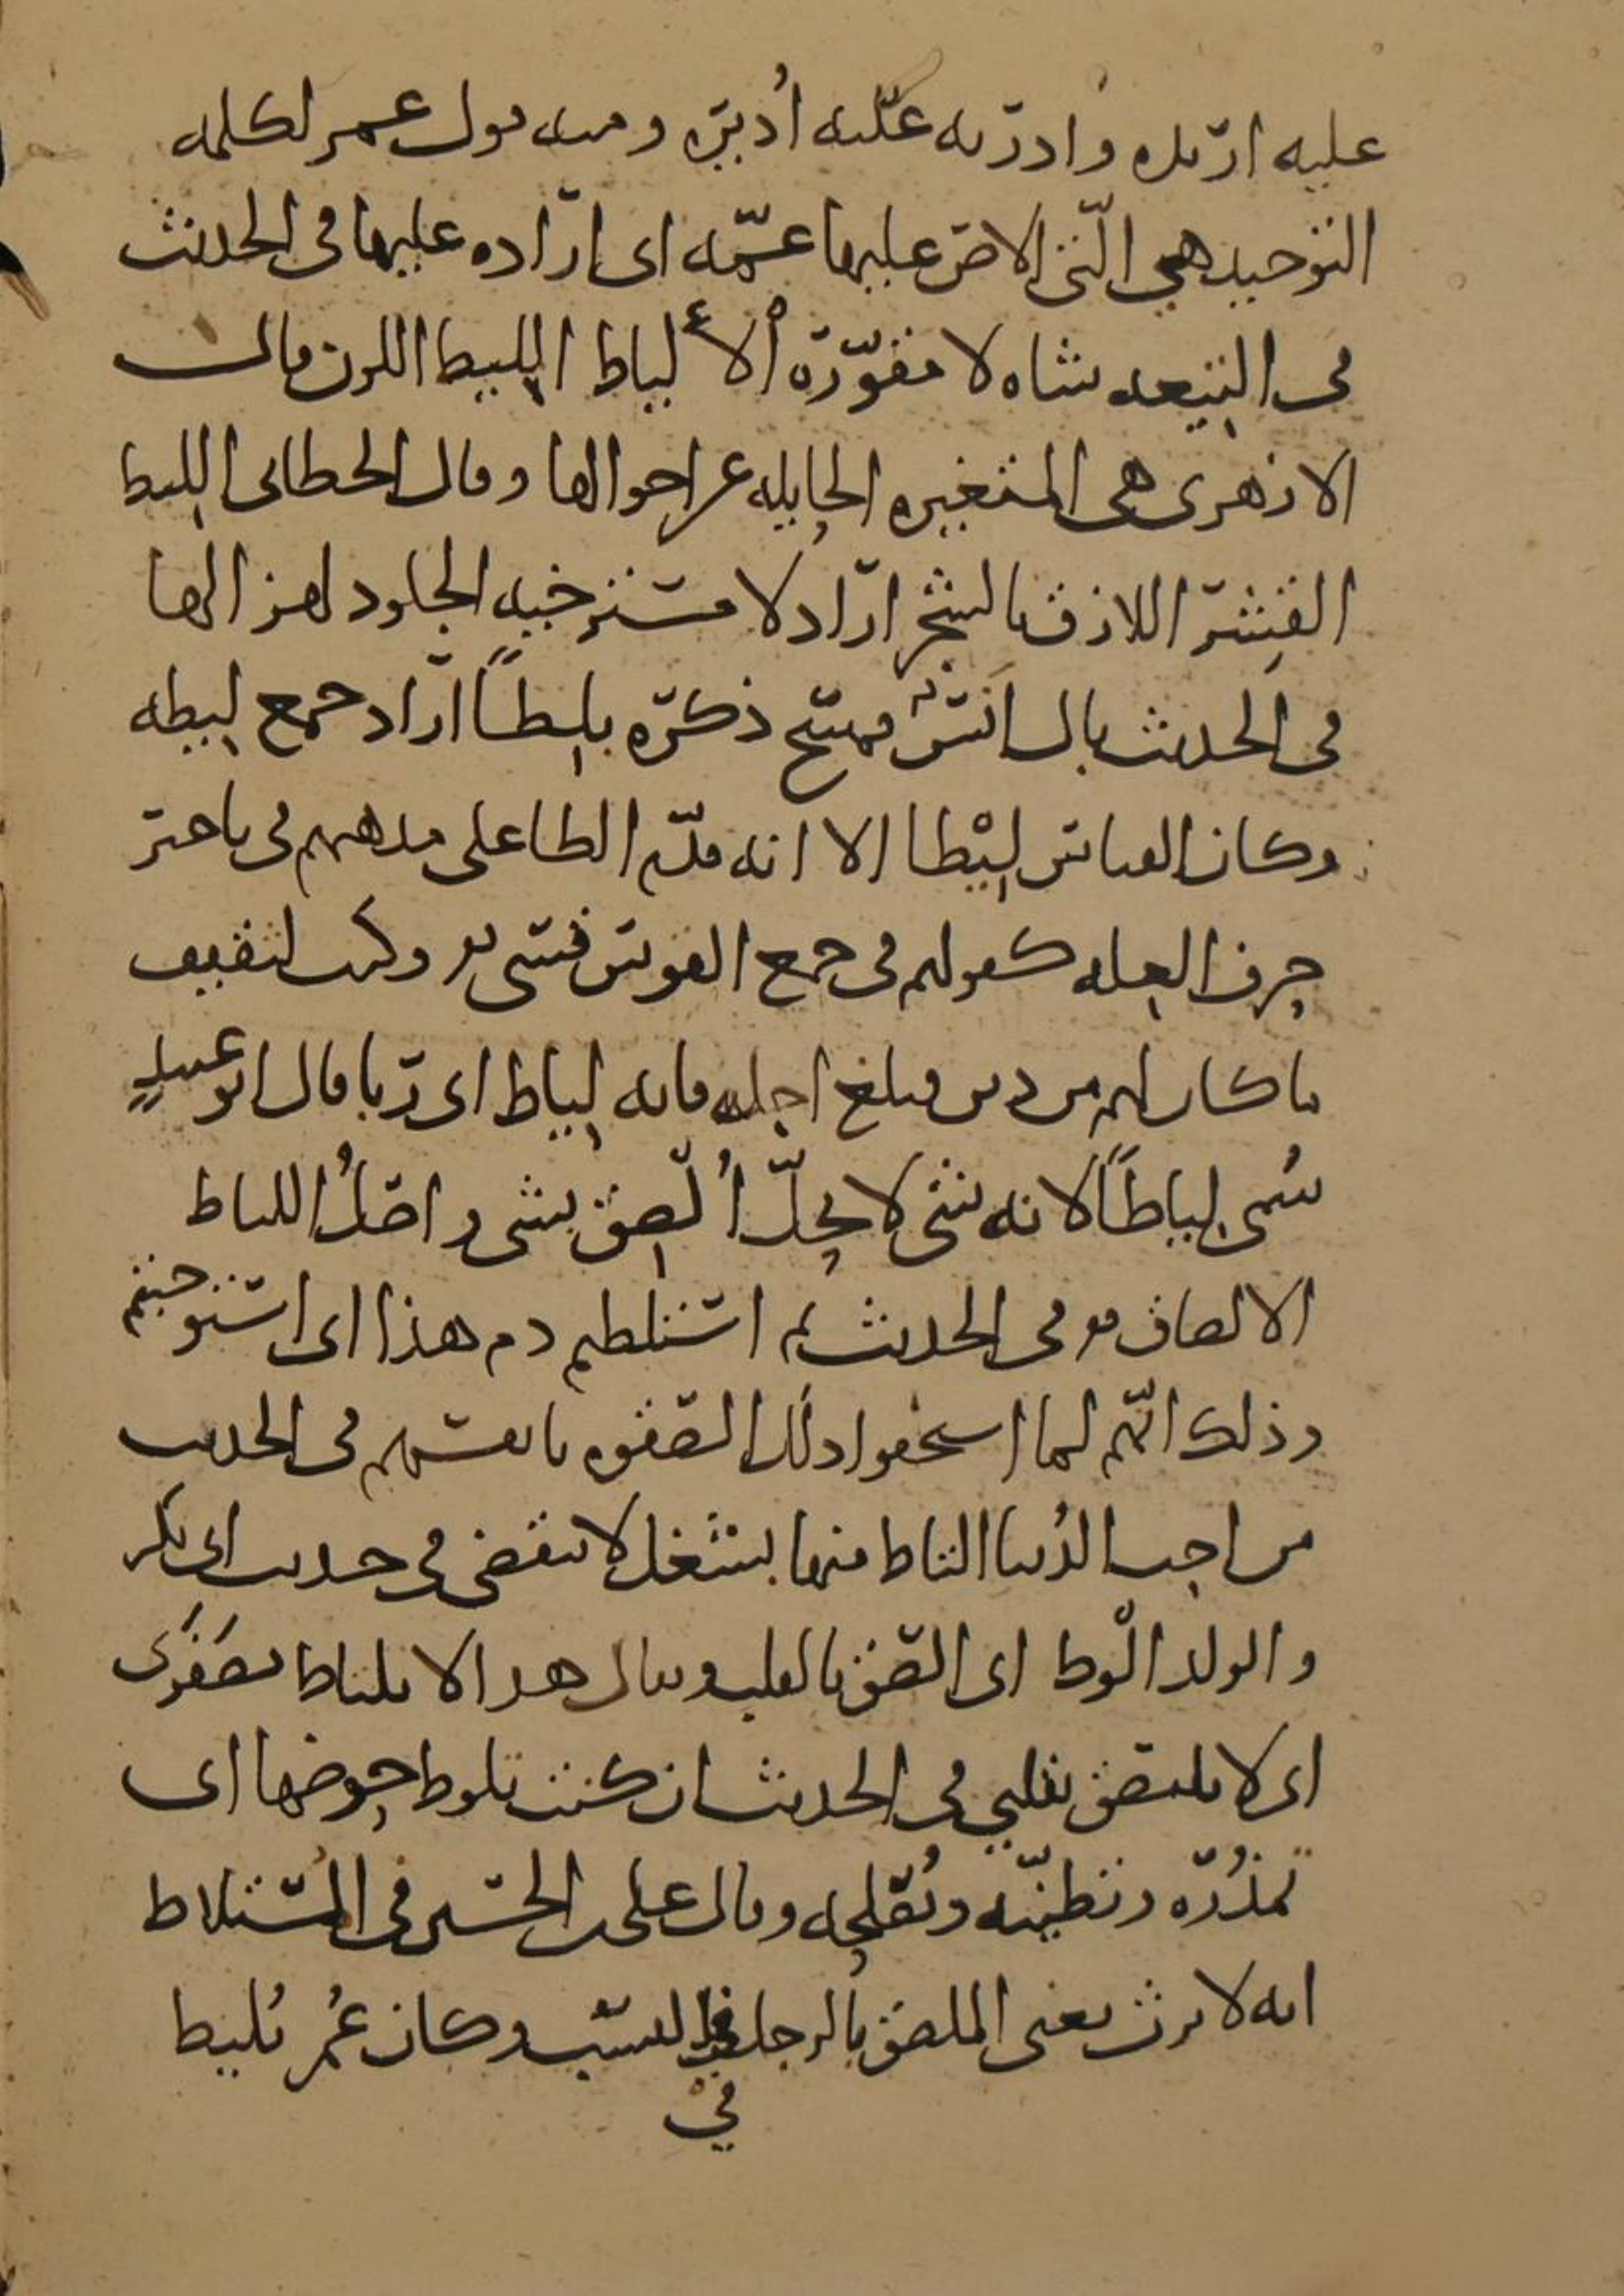 عليه اريده وادرته عليه اديره ومنه قول عمر لكلمه
التوحيد هي التي الاص عليها عمه اى اراده عليها فى الحديث
فى التيعه شاه لا مقورّة ألالياط الليط اللون قالـــ
الازهرى هى المتغيره الحايله عن احوالها وقال الخطابى الليط
القشر اللازق بالشجر اراد لا مسترخيه الجلود لهزالها
فى الحديث بال انس فمسح ذكره بليطاً اراد جمع ليطه
وكان القياس ليْطا الا انه قدّم الطا على مذهبهم فى تاخير
حرف العله كقولهم فى جمع القوس قسى وكتب لثقيف
ما كان لهم من دين فبلغ اجله فانه لياط اى ربا قال ابو عبيدٍ
سُمى لياطاً لانه شى لا يحلّ اُلصق بشى واصلُ اللياط
الالصاق وفى الحديث ثم استلطتم دم هذا اى استوجبتم
وذلك انهم لما استحقوا ذلك الصقوه بانفسهم فى الحديث
من احب الدُنيا التاط منها بشغل لا ينقضى فى حديث ابى بكر
والولد الْوط اى الصق بالقلب ويقال هذا لا يلتاط بصَفَرى
اى لا يلتصق بقلبي فى الحديث ان كنت تلوط حوضها اى
تمدُره وتطينّه وتُصلحه وقال على بن الحسين فى المستلاط
انه لا يرث يعنى الملصق بالرجل فى النسب وكان عُمر يُليط
في